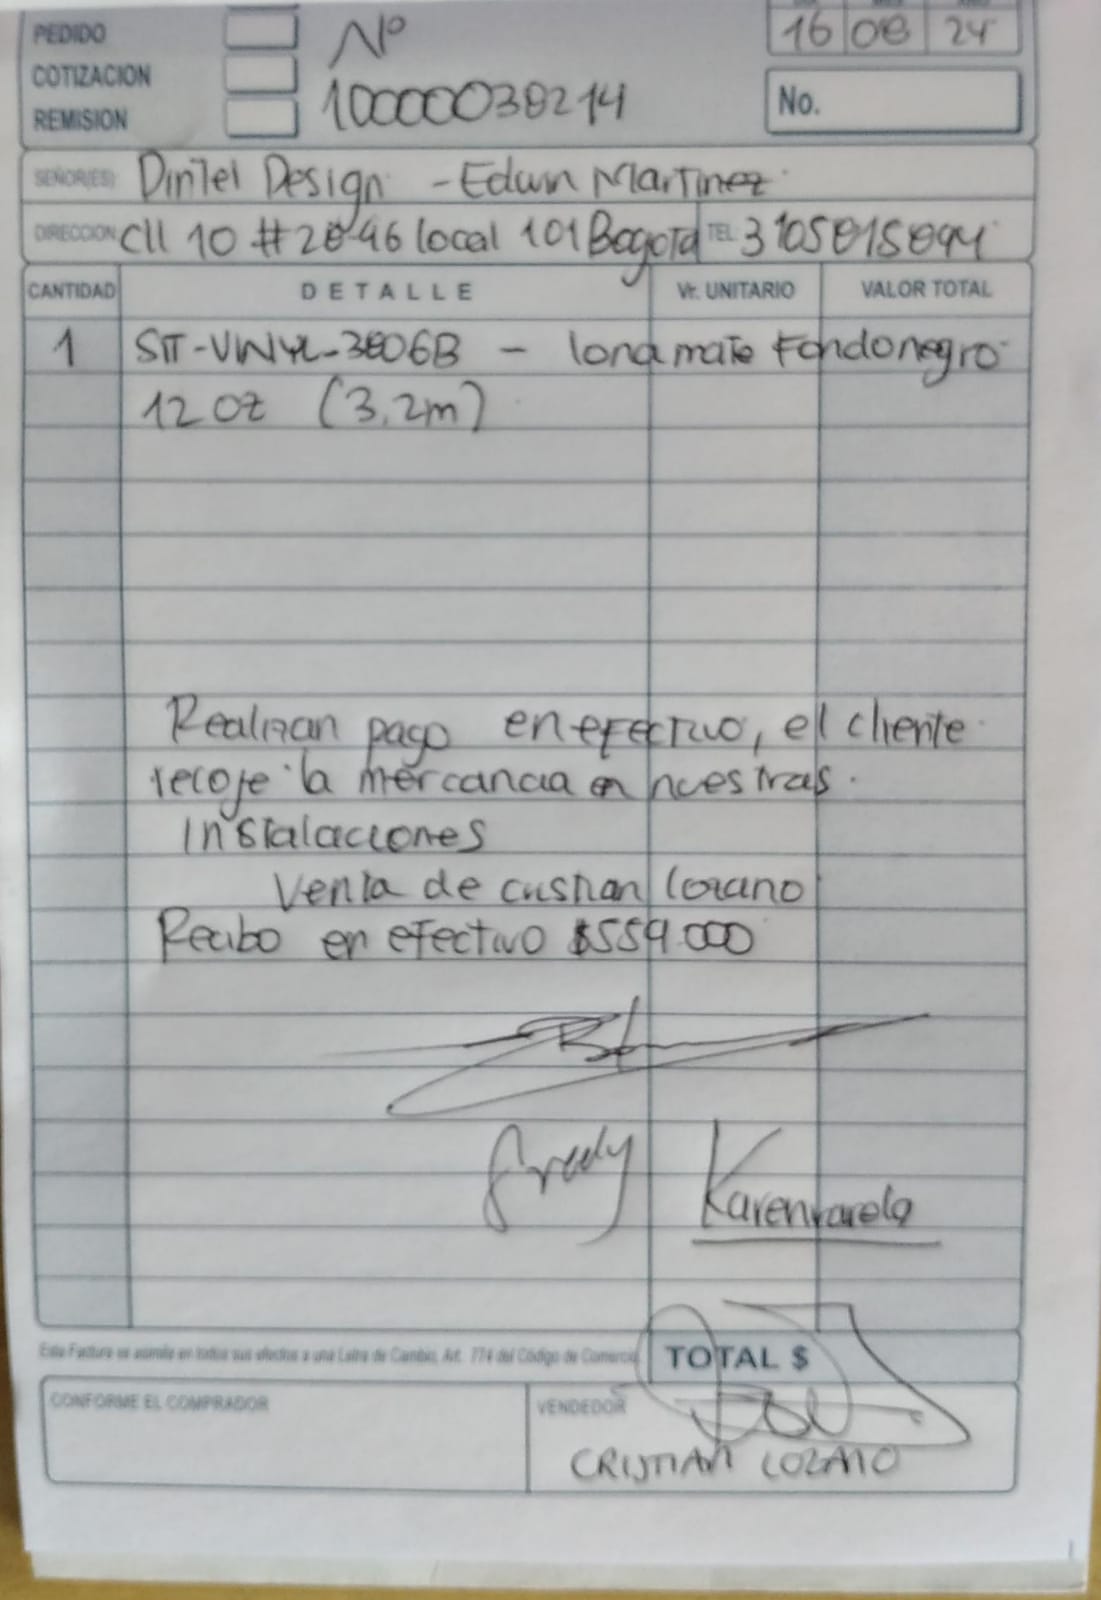 PEDIDO
COTIZACION
REMISION
Nº
10000038214
16 08 24
No.
SEÑOR(ES): Dintel Design - Edwin Martinez
DIRECCION: Cll 10 # 28-46 local 101 Bogota TEL: 3105815894
CANTIDAD DETALLE Vr. UNITARIO VALOR TOTAL
1 SIT-VINYL-3806B - lona mate Fondo negro
12 oz (3,2m)
Realizan pago en efectivo, el cliente
recoje la mercancia en nuestras
instalaciones
Venta de cristian lozano
Recibo en efectivo $559.000
Fredy Karen varela
Esta Factura se asimila en todos sus efectos a una Letra de Cambio, Art. 774 del Código de Comercio
TOTAL $
CONFORME EL COMPRADOR
VENDEDOR
CRISTIAN LOZANO